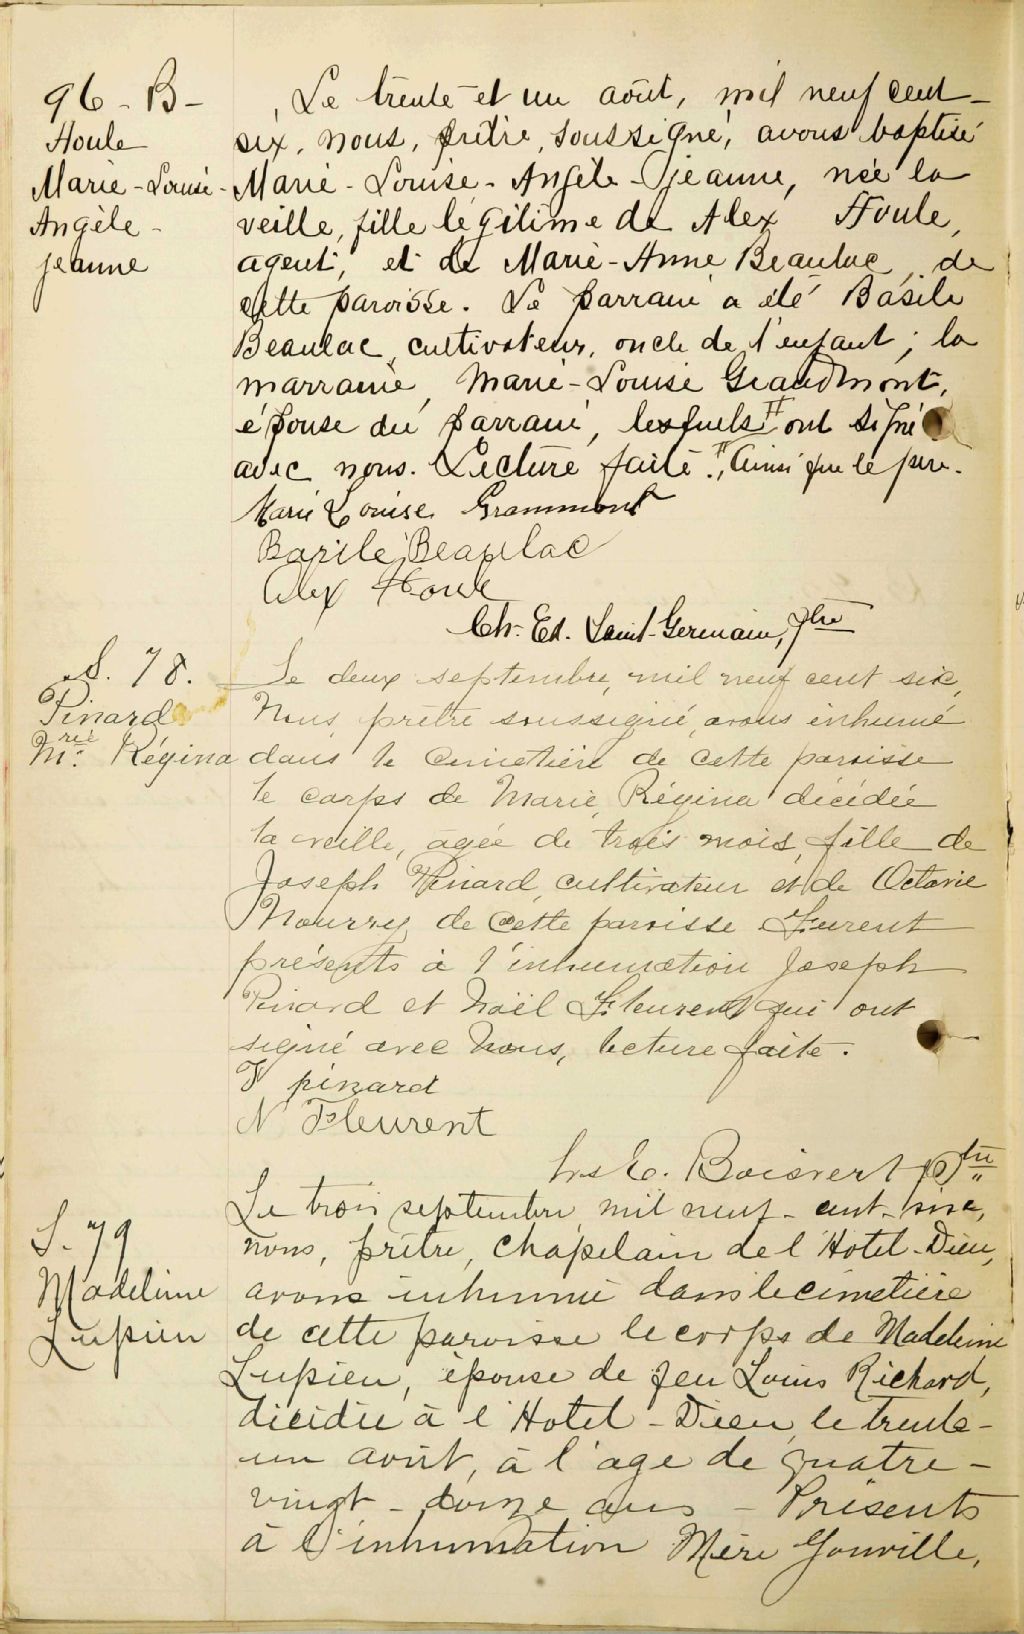 96 - B -
Houle
Marie - Louise -
Angèle -
jeanne
Le trente et un août, mil neuf cent
six, nous, prêtre, soussigné, avons baptisé
Marie - Louise - Angèle - jeanne, née la
veille, fille légitime de Alex Houle,
agent, et de Marie-Anne Beaulac, de
cette paroisse. Le parrain a été Basile
Beaulac, cultivateur, oncle de l'enfant; la
marraine, Marie-Louise Grandmont,
épouse du parrain, lesquels # ont signé
avec nous. Lecture faite. # Ainsi que le père.
Marie Louise Grammont
Basile Beaulac
Alex Houle
Ch. Ed. Saint-Germain, ptre
S. 78.
Pinard
Mrie Régina
Le deux septembre, mil neuf cent six,
Nous, prêtre soussigné, avons inhumé
dans le cimetière de cette paroisse
le corps de Marie Régina décédée
la veille, agée de trois mois, fille de
Joseph Pinard, cultivateur et de Octavie
Nourry de cette paroisse Furent
présents à l'inhumation Joseph
Pinard et Noël Fleurent qui ont
signé avec Nous, lecture faite.
J pinard
N Fleurent
E. Boisvert Ptre
S. 79
Madeleine
Lupien
Le trois septembre mil neuf - cent - six,
nous, prêtre, chapelain de l'Hotel-Dieu,
avons inhumé dans le cimetière
de cette paroisse le corps de Madeleine
Lupien, épouse de feu Louis Richard,
décédée à l'Hotel - Dieu, le trente -
un août, à l'age de quatre -
vingt - douze ans - Présents
à l'inhumation Mère Youville,